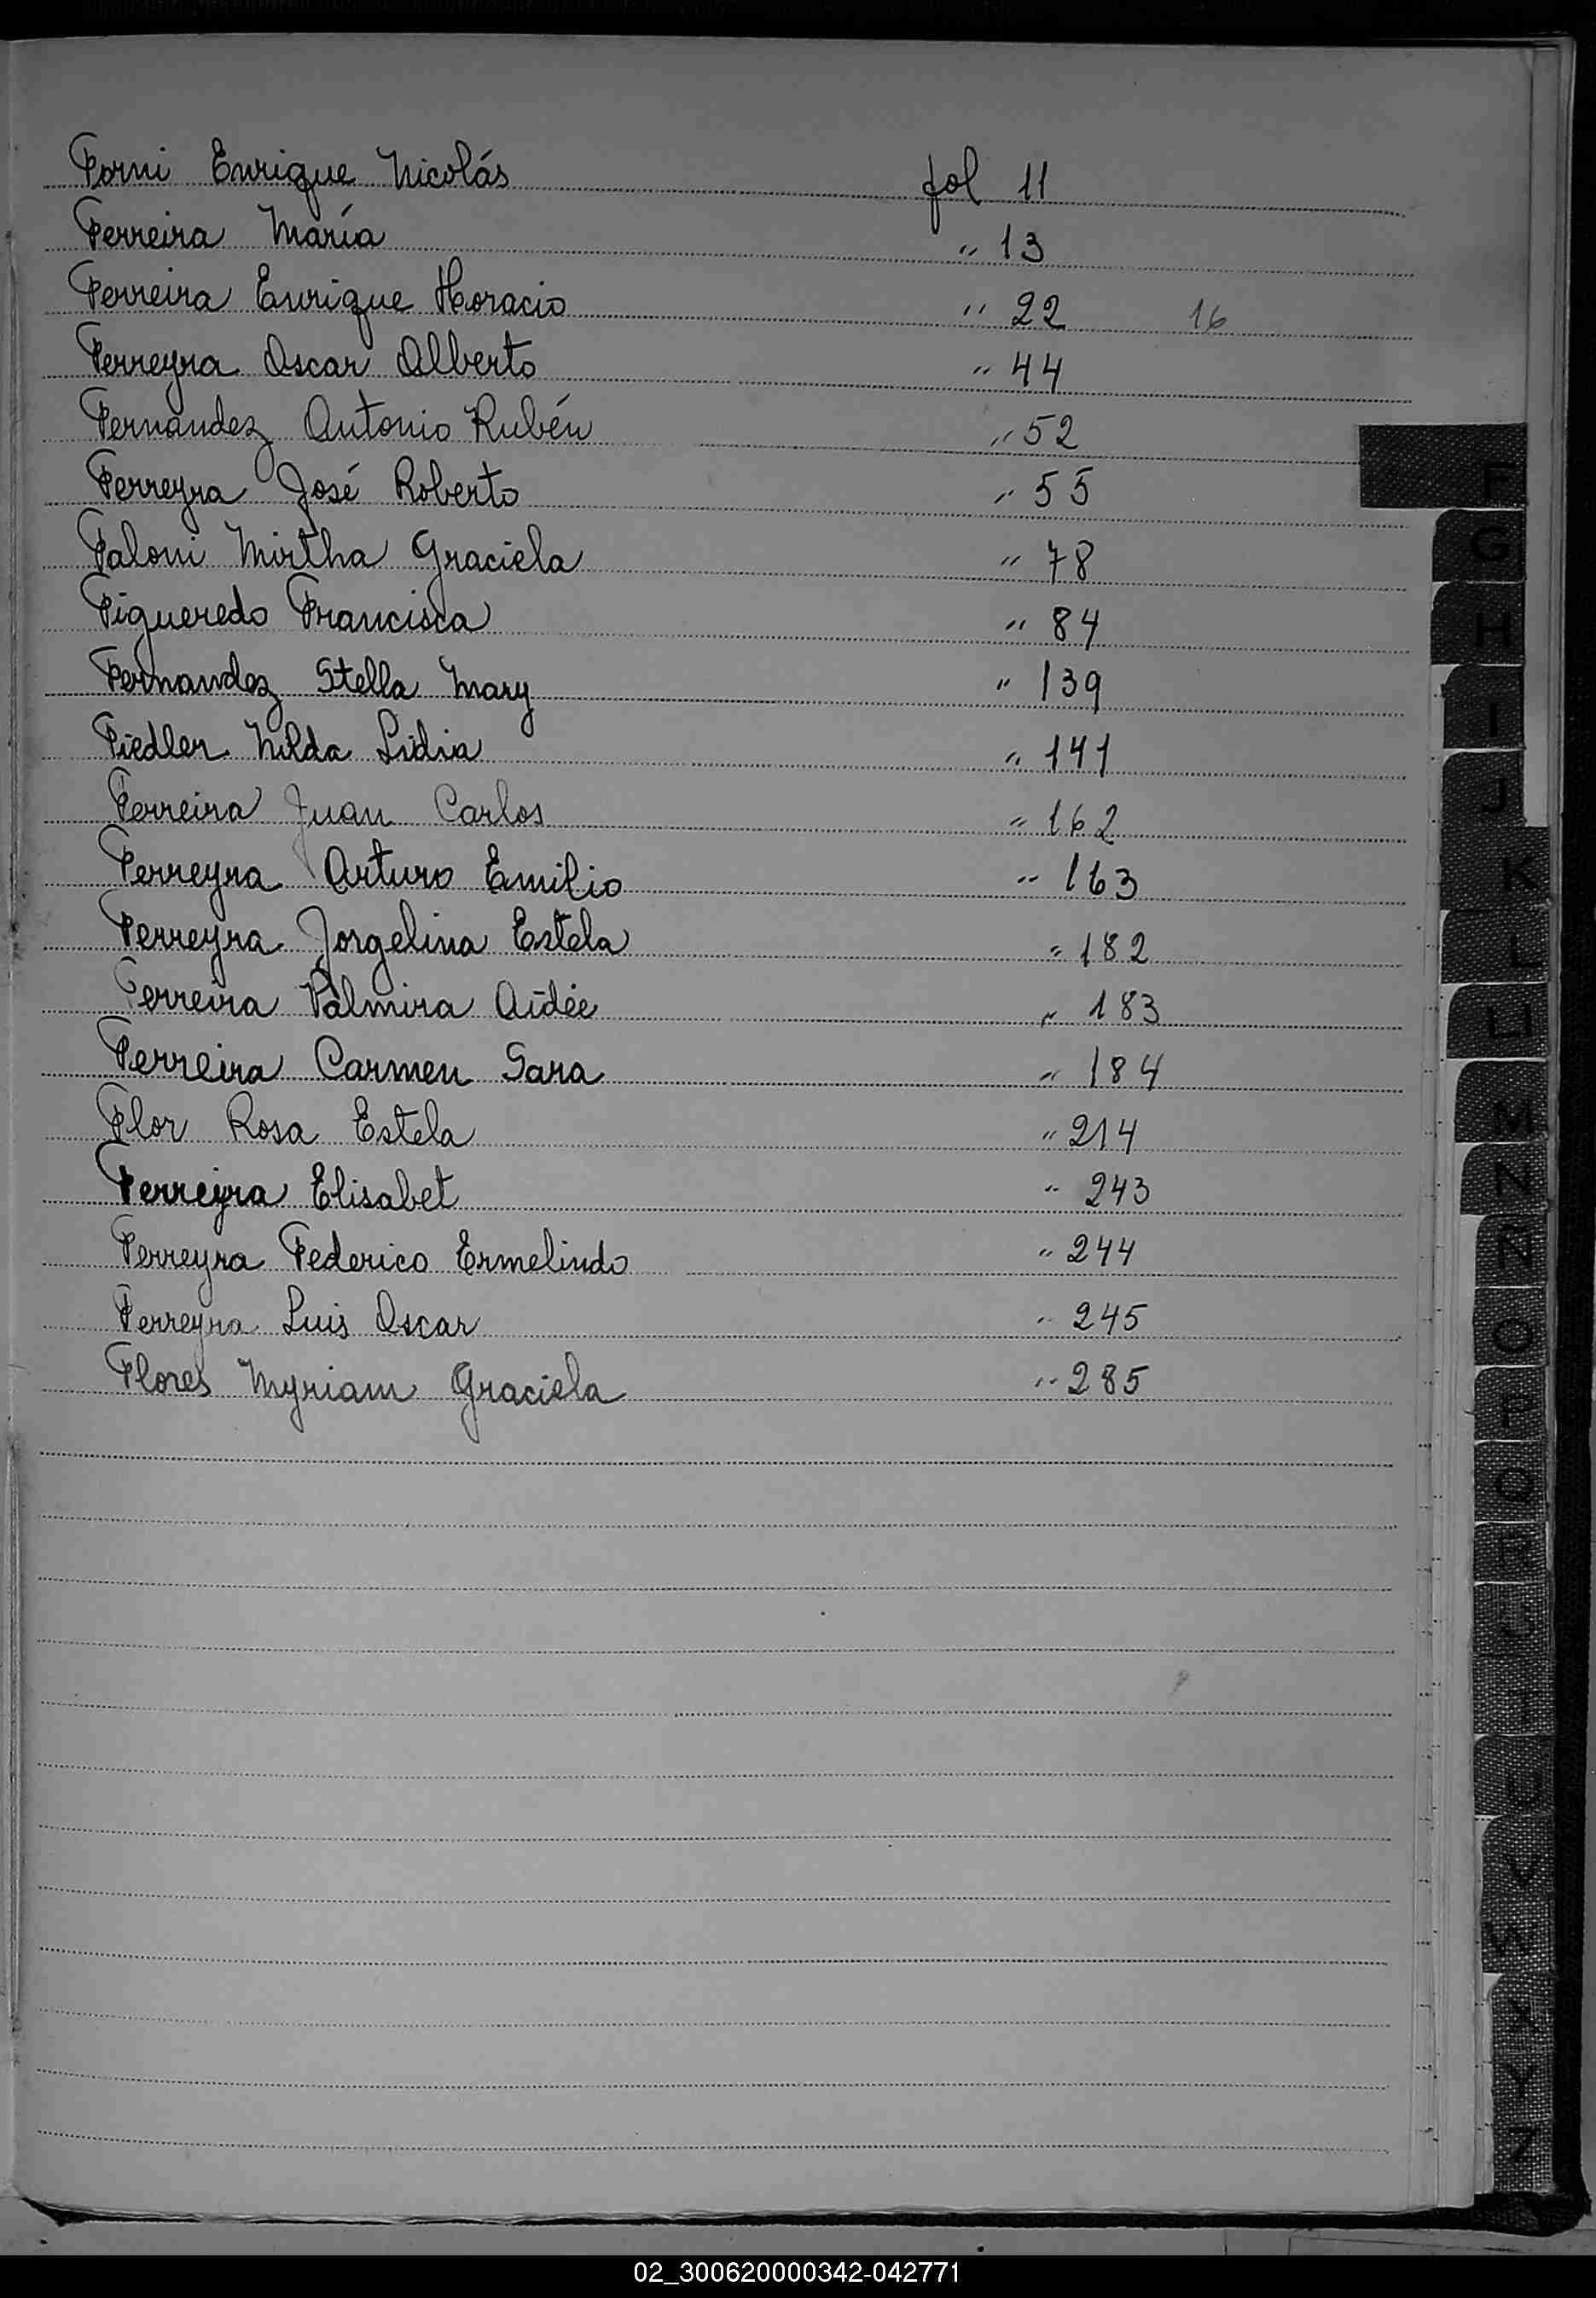 Forni Enrique Nicolás fol 11
Ferreira María " 13
Ferreira Enrique Horacio " 22 16
Ferreyra Oscar Alberto " 44
Fernandez Antonio Rubén " 52
Ferreyra José Roberto " 55
Faloni Mirtha Graciela " 78
Figueredo Francisca " 84
Fernandez Stella Mary " 139
Fiedler Nilda Lidia " 141
Ferreira Juan Carlos " 162
Ferreyra Arturo Emilio " 163
Ferreyra Jorgelina Estela " 182
Ferreira Palmira Aidée " 183
Ferreira Carmen Sara " 184
Flor Rosa Estela " 214
Ferreyra Elisabet " 243
Ferreyra Federico Ermelindo " 244
Ferreyra Luis Oscar " 245
Flores Myriam Graciela " 285
F
G
H
I
J
K
L
Ll
M
N
Ñ
O
P
Q
R
S
T
U
V
W
X
Y
Z
02_300620000342-042771